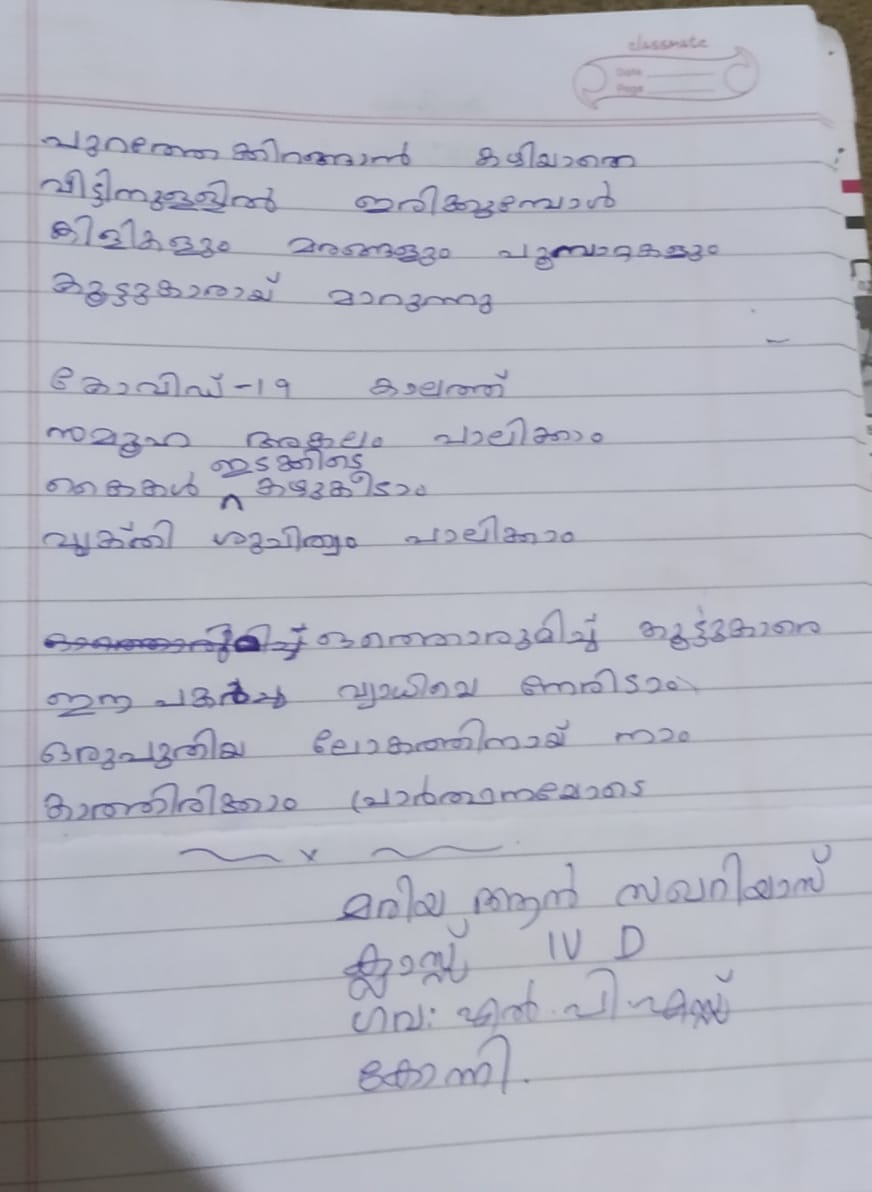 classmate
Date
Page
പുറത്തേക്കിറങ്ങാൻ കഴിയാതെ
വീട്ടിനുള്ളിൽ ഇരിക്കുമ്പോൾ
കിളികളും മരങ്ങളും പൂമ്പാറ്റകളും
കൂട്ടുകാരായ് മാറുന്നു
കോവിഡ്-19 കാലത്ത്
സമൂഹ അകലം പാലിക്കാം
കൈകൾ ഇടക്കിടെ കഴുകീടാം
വ്യക്തി ശുചിത്വം പാലിക്കാം
ഒത്തൊരുമിച്ച് കൂട്ടുകാരെ
ഈ പകർച്ച വ്യാധിയെ നേരിടാം
ഒരുപുതിയ ലോകത്തിനായ് നാം
കാത്തിരിക്കാം പ്രാർത്ഥനയോടെ
മറിയ ആൻ സഖറിയാസ്
ക്ലാസ്സ് IV D
ഗവ: എൽ.പി.എസ്സ്
കോന്നി.